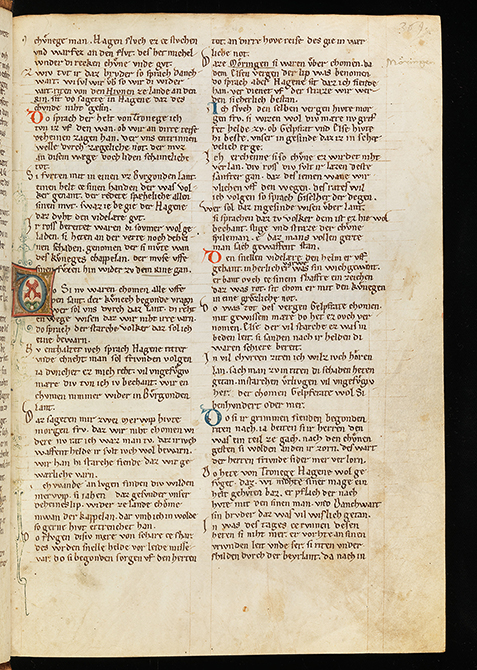 chv̊nege man. Hagen slv̊ch ez ce stvchen
vnd warfez an den flv̊t. des het michel
wunder di recken chv̊ne vnde gv̊t.
Zwiv tv̊t ir daz brv̊der so sprach Danch
wart. wi svl wir vb so wir di wider
vart riten von den Hivnen ze lande an den
Rin. sit do sagete in Hagene daz des
chvnde niht gesin.
Do sprach der helt von Tronege ich
tvn iz vf den wan. ob wir an dirre reise
deheinen zagen han. der vns entrinnen
welle dvrch zegeliche not. der mvz
an disem wage doch liden schamelichen
tot.
Si fvrten mit in einen vz Bvrgonden lant
einen helt ce sinen handen der was vol
ker genant. der redete spæheliche allen
sinen mvt. swaz ie begie der Hagene
daz dvht den videlære gvt.
Ir ross bereitet waren di sovmer wol ge
laden. si heten an der verte noch dehei
nen schaden. genomen der si mvte wan
des kvneges chappelan. der mvse vffe
den fvzen hin wider zv dem Rine gan.
Do si nv waren chomen alle vffe
den sant. der kvnech begonde vragen
wer sol vns dvrch daz lant. di rehten
wege wisen daz wir niht irre varn.
do sprach der starche volker daz sol ich
eine bewarn.
Nv enthaltet vch sprach Hagene ritter
vnde chneht. man sol frivnden volgen
ia dvnchet ez mich reht. vil vngefvgiv
mære div tvn ich iv bechant. wir en
chomen nimmer wider in Bvrgonden
lant.
Daz sageten mir zwei merwip hivte
morgen frv. daz wir niht chomen wi
dere nv rat ich waz man tv. daz ir ivch
waffent helde ir svlt ivch wol bewarn.
wir han hi starche viende daz wir ge
wærliche varn.
Ich wande an lvgen finden div wilden
merwip. si iahen daz gesvnder vnser
deheines lip. wider ze lande chome
niwan der kappelan. dar vmb ich in wolde
so gerne hivt ertrenchet han.
Do flvgen disiv mære von schare ce schar.
des wrden snelle helde vor leide misse
var. do si begonden sorgen vf den herten
tot. an dirre hove reise des gie in wær
liche not.
Daze Mœringen si waren vber chomen. da
dem Elsen vergen der lip was benomen.
do sprach aber Hagene sit daz ich viende
han. verdienet vf der straze wir wer
den sicherlich bestan.
Ich slvch den selben vergen hivte mor
gen frv. si wizen wol div mære nv grif
fet helde zv. ob Gelpfrat vnd Else hivte
hi beste. vnser ingesinde daz iz in schæ
delich erge.
Ich erchenne si so chvne ez wirdet niht
verlan. div ross div svlt ir lazen deste
sanfter gan. daz des iemen wæne wir
vliehen vf den wegen. des rates wil
ich volgen so sprach Giselher der degen.
Wer sol daz ingesinde wisen vber lant.
si sprachen daz tv volker dem ist hie wol
bechant. stige vnd straze der chvne
spileman. e daz mans vollen gerte
man sach gewaffent stan.
Den snellen videlære den helm er vf
gebant. in herlicher varwe was sin wichgewant.
er bant ovch ze sinem schafte ein zeichen
daz was rot. sit chom er mit den kvnegen
in eine grœzliche not.
Do was tot des vergen Gelpfrate chomen.
mit gewissem mære do het ez ovch ver
nomen. Else der vil starche ez was in
beden leit. si sanden nach ir helden di
waren schiere bereit.
In vil chvrzen ziten ich wilz ivch hœren
lan. sach man zv in riten di schaden heten
getan. in starchen vrlivgen vil vngefvgiv
her. der chomen Gelpfrate wol Si
benhvndert oder mer.
Do si ir grimmen fienden begvnden
riten nach. ia leiten si ir herren den
was ein teil ze gach. nach den chvnen
gesten si wolden anden ir zorn. des wart
der herren frivnde sider mer verlorn.
Do hete von Tronege Hagene wol ge
fvget daz. wi mohte siner mage ein
helt gehvten baz. er pflach der nach
hvte mit den sinen man. vnd Danchwart
sin brvder daz was vil wislich getan.
In was des tages ce rvnnen des en
heten si niht mer. er vorhte an sinen
vrivnden leit vnde ser. si riten vnder
schilden dvrch der beyrlant. da nach in
Möringen